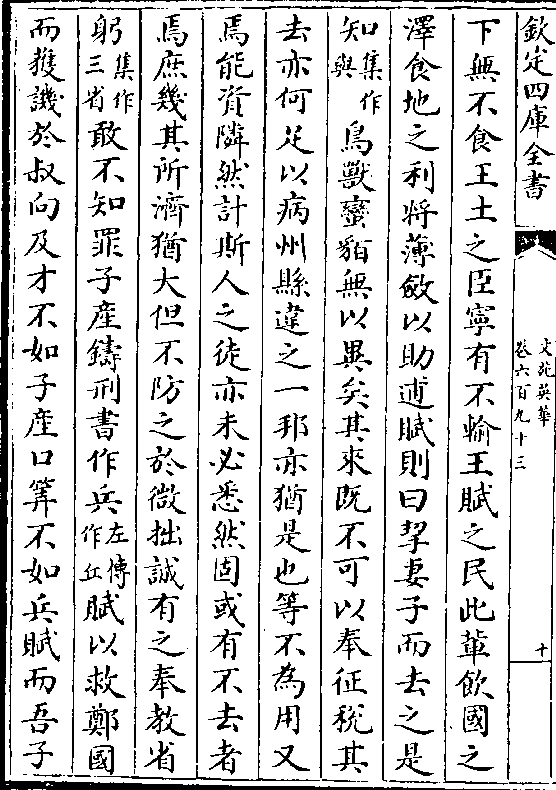 欽定四庫全書
文苑英華
卷六百九十三
十
下無不食王土之臣寧有不輸王賦之民此輩飲國之
澤食地之利將薄斂以助逋賦則曰挈妻子而去之是
知集作與鳥獸蠻貊無以異矣其來既不可以奉征稅其
去亦何足以病州縣違之一邦亦猶是也等不為用又
焉能資隣然計斯人之徒亦未必悉然固或有不去者
焉庶幾其所濟猶大但不防之於微拙誠有之奉教省
躬集作三省敢不知罪子產鑄刑書作兵左傳作丘賦以救鄭國
而獲譏於叔向及才不如子產口筭不如兵賦而吾子